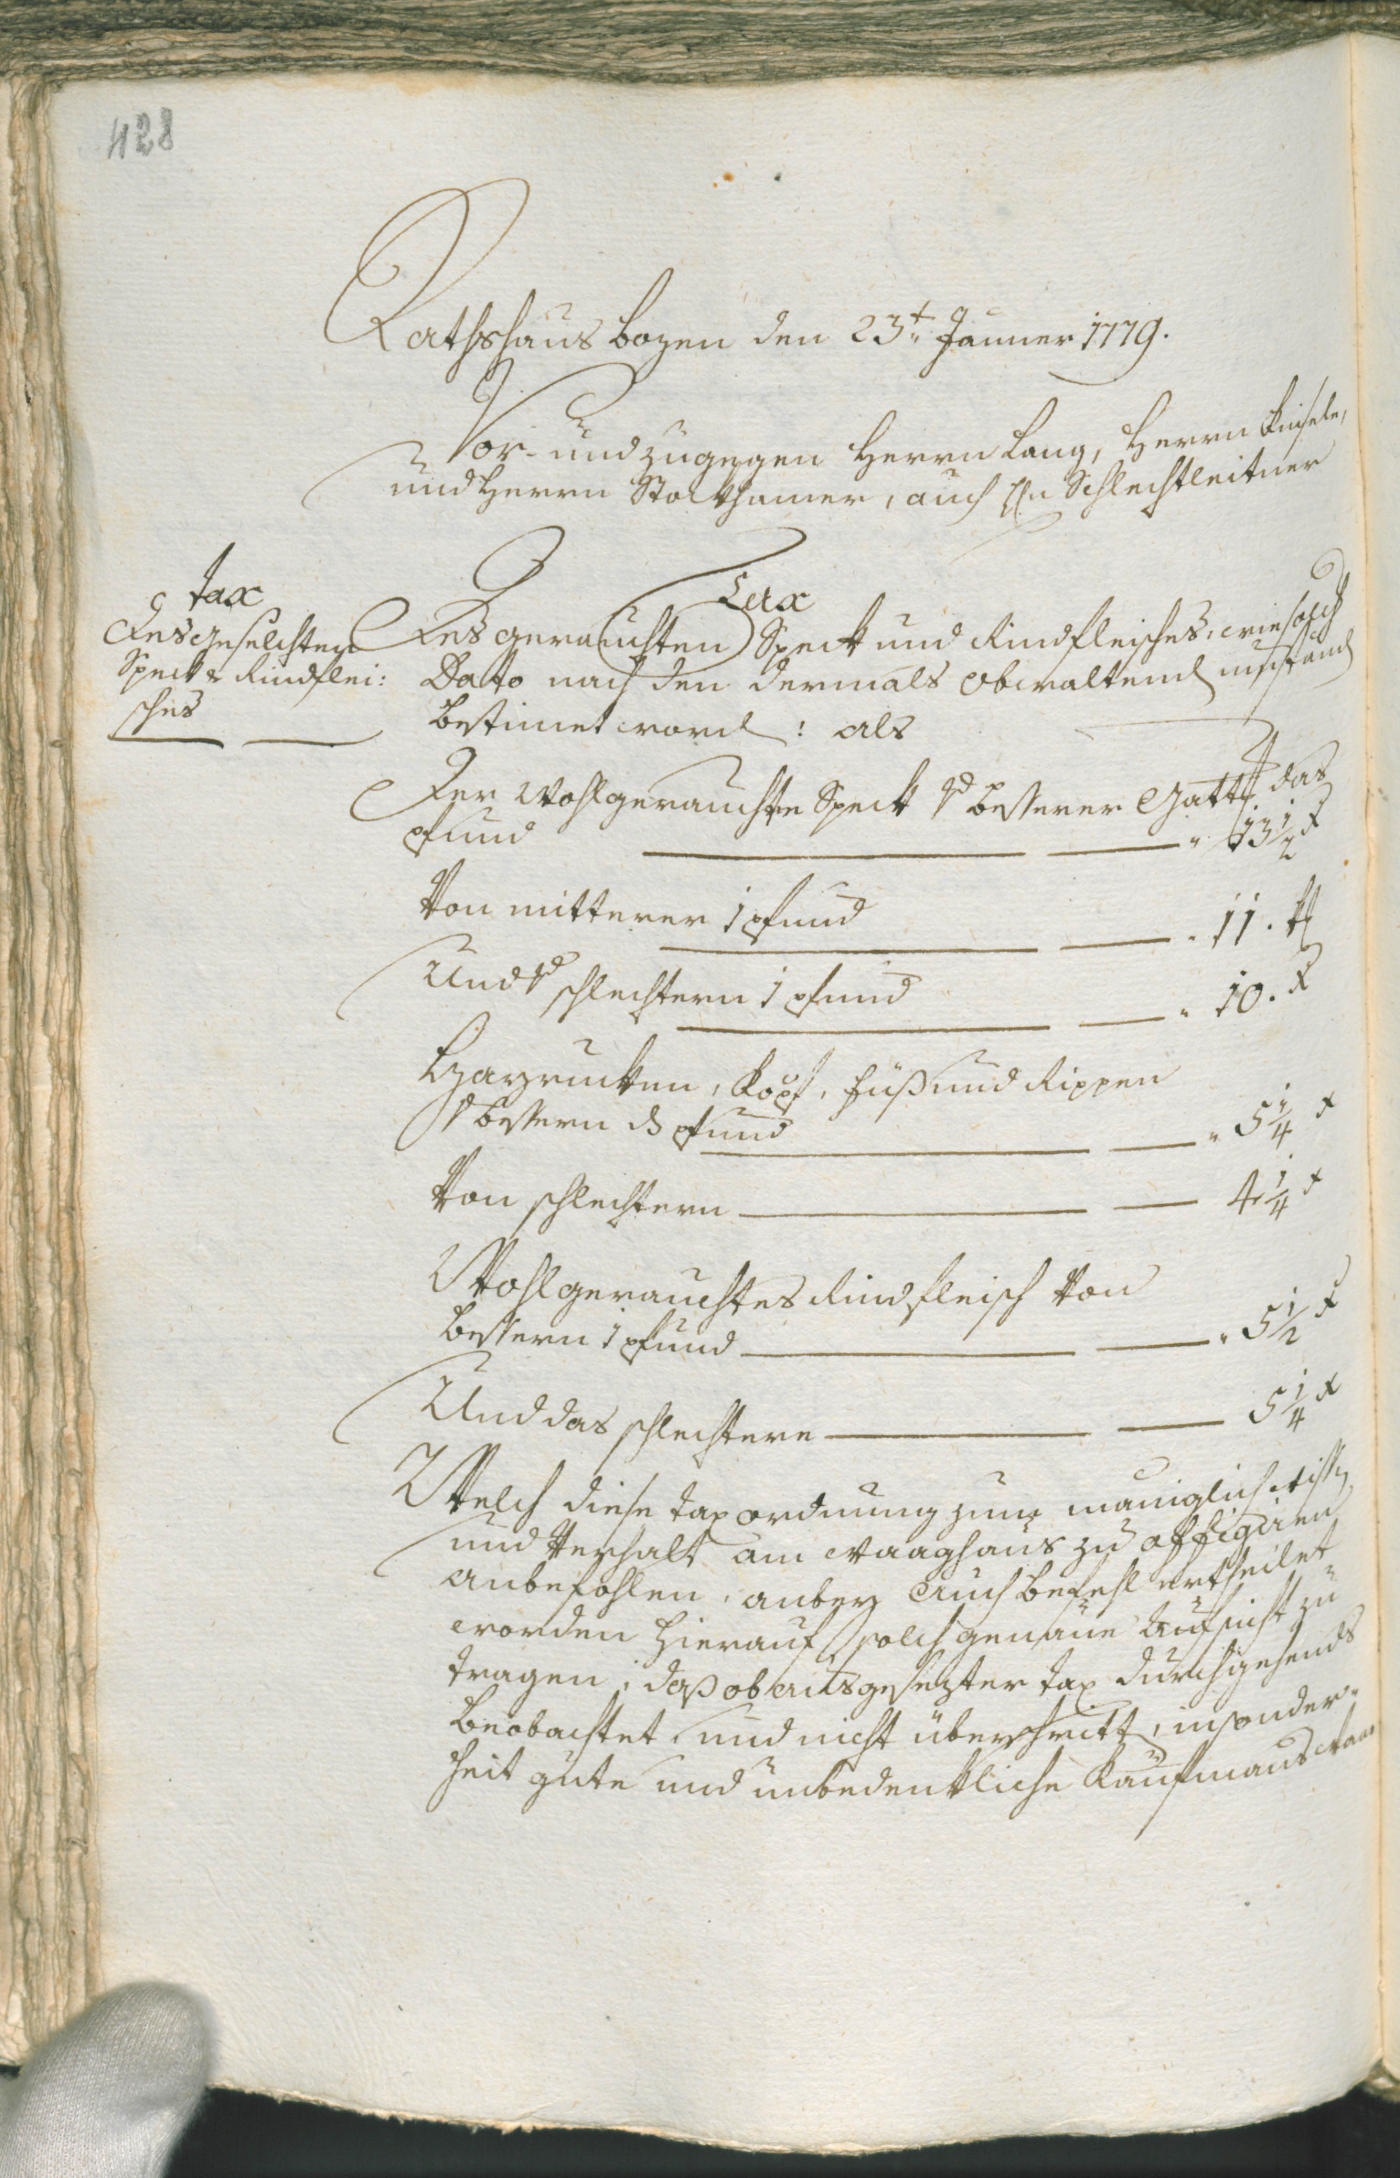 428
Rathshaus Bozen den 23t. Jänner 1779.
Vor- und zugegen Herrn Lang, Herrn
und Herrn Stockhamer, auch Hn Schlechtleitner
Tax
des geselchten
Speck & Rindflei:
sches
Tax
Des gerauchten Speck und Rindfleisches, wie solch
Dato nach den dermals obwaltend umständ
bestimet word: als
Der wohlgerauchte Speck besserer Gattg das
pfund " 13 1/2 x
Von mitterer 1 pfund " 11. x
Und schlechtern 1 pfund " 10. x
Harrucken, Kopf, Füß und Rippen
bessern ds pfund " 5 1/4 x
Von schlechtern 4 1/4 x
Wohlgerauchtes Rindfleisch von
bessern 1 pfund " 5 1/2 x
Und das schlechtere 5 1/4 x
Welch diese Taxordnung zum mäniglich wissen
und Verhalt am Waaghaus zu affigiren
anbefohlen, anbey auch Befehl ertheilet
worden hierauf solch genaue Aufsicht zu
tragen, daß ob ausgesezter Tax durchgehends
beobachtet und nicht überschritt, insonder-
heit gute und unbedenkliche Kaufmans